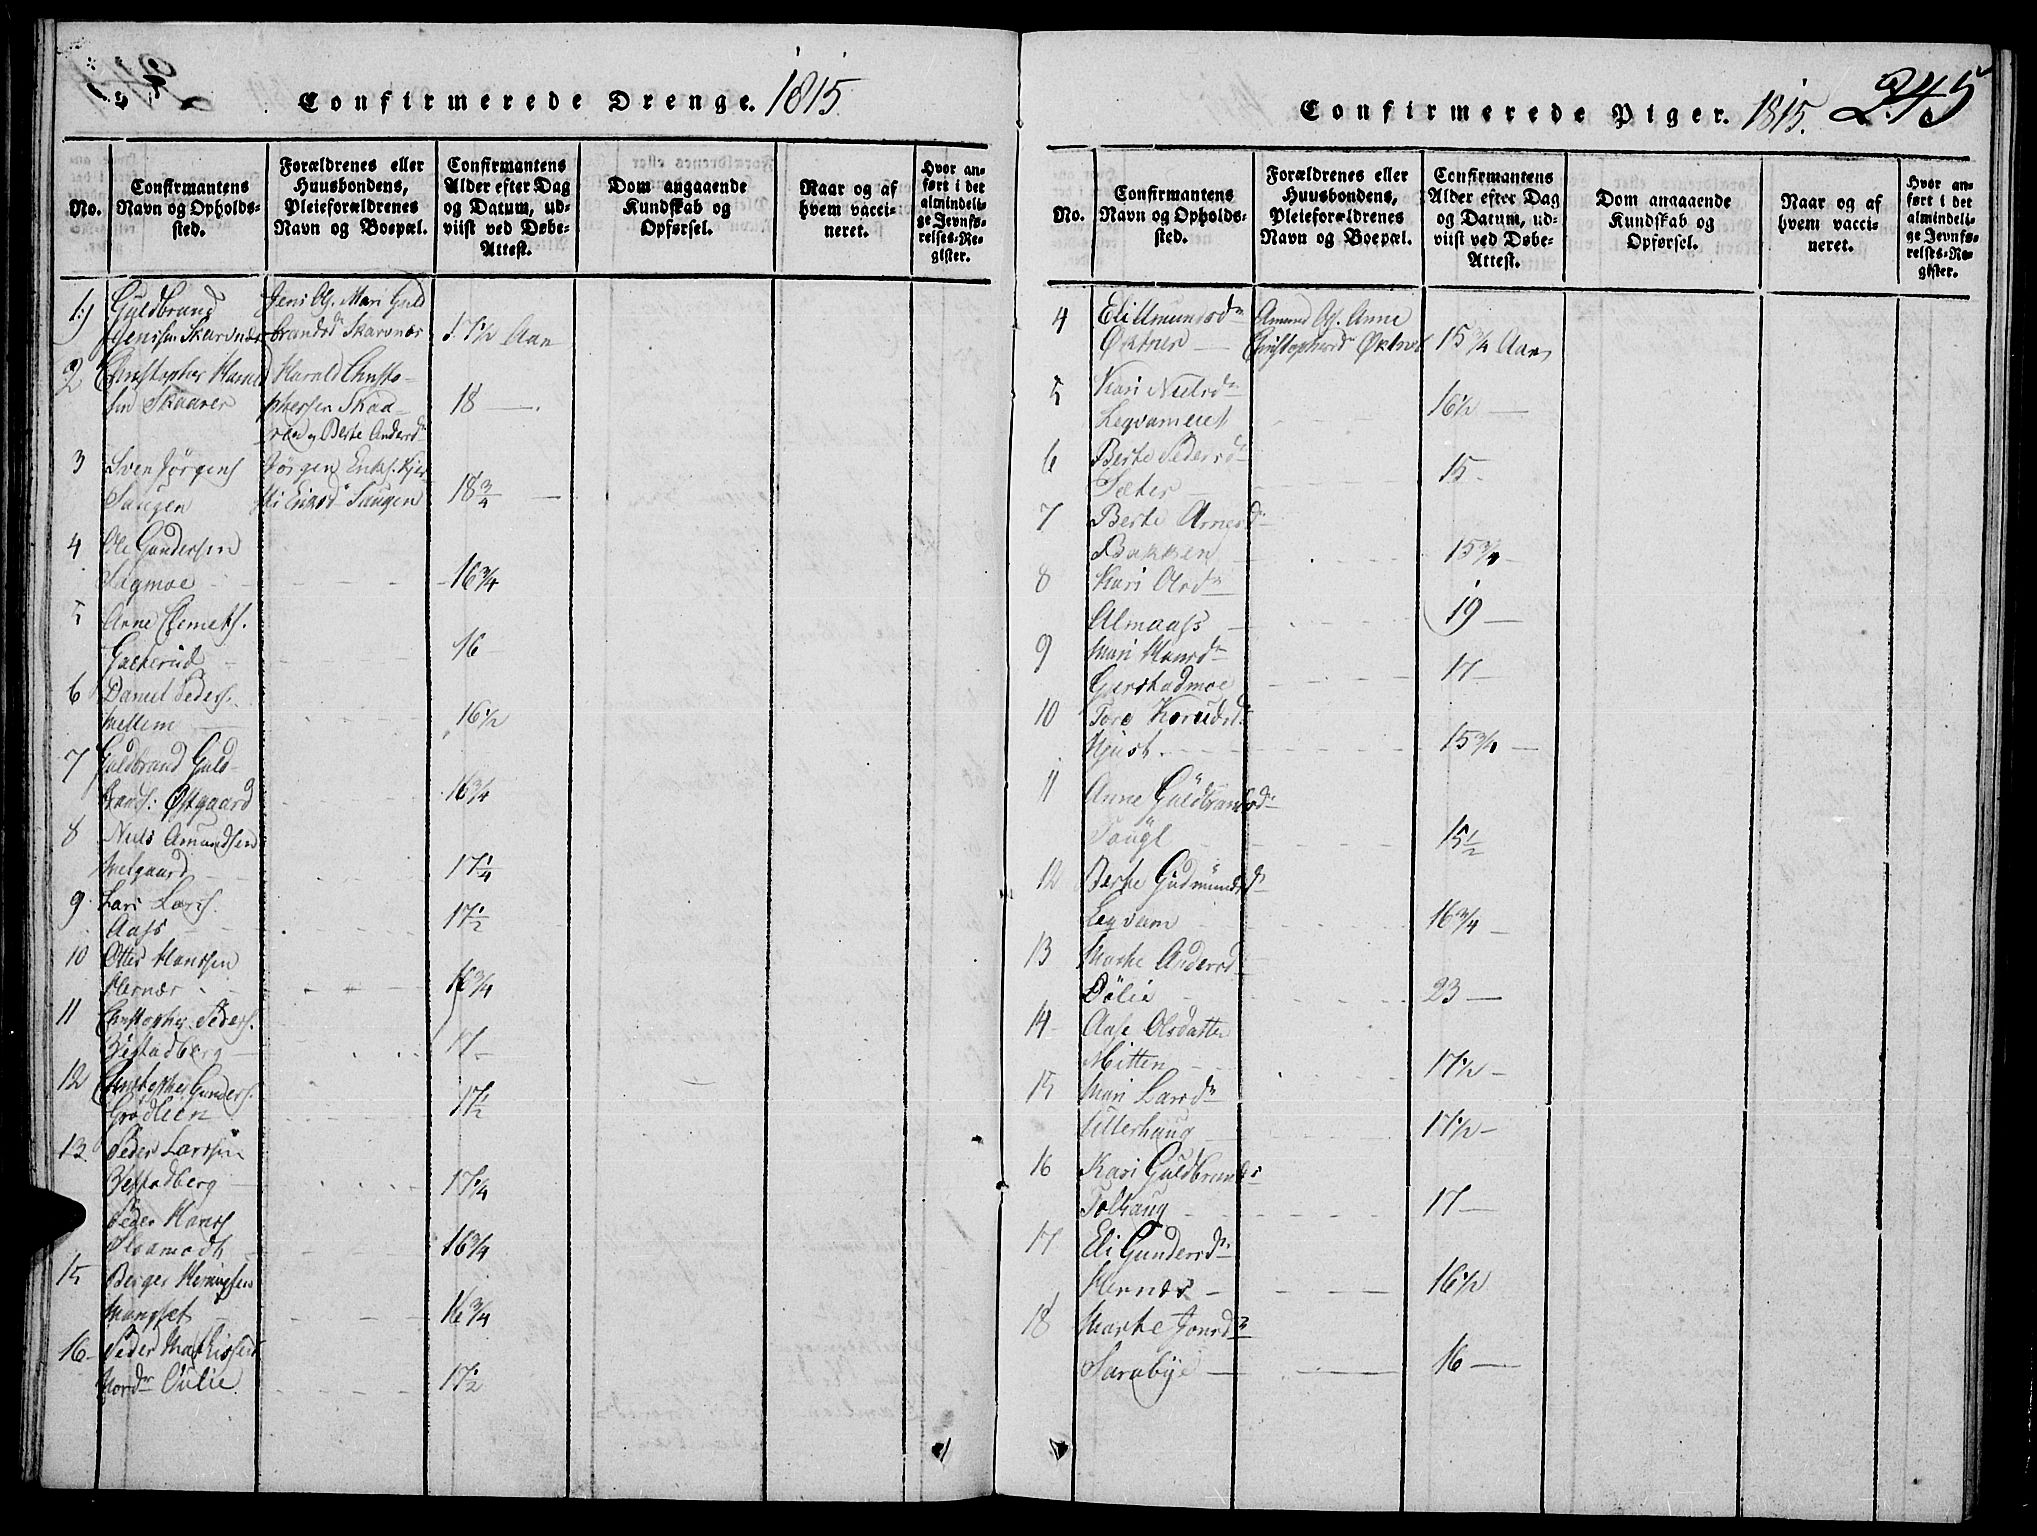 Confirmerede Drenge. 1815.
No.
Confirmantens Navn og Opholdssted.
Forældrenes eller Huusbondens, Pleieforældrenes Navn og Boepæl.
Confirmantens Alder efter Dag og Datum, udviist ved Døbe-Attest.
Dom angaaende Kundskab og Opførsel.
Naar og af hvem vaccineret.
Hvor anført i det almindelige Jevnførelses-Register.
1) Guldbrand Jens og Mari Guld
Jenssen Skarnæs brandsdr Skarnæs 17½ Aar
2 Christopher Harald Harald Christo-
sen Skaaren phersen Skaa- 18 —
ren og Berte Andersdr
3 Sven Jörgens Jörgen Eriks. Kjer
Saugen sti Eriksdr Saugen 18¾ —
4 Ole Gundersen
Sagmoe 16¾
5 Arne Clemets.
Galterud 16
6 Daniel Peders.
Mellem 16½
7 Guldbrand Guld-
brands: Østgaard 16¾
8 Niels Amundsen
Melgaard 17¼
9 Lars Lars.
Aass 17½
10 Otter Hanssen
Hernær 16¾
11 Christopher Peders.
Bestadberg 17
12 Christopher Gunders.
Grødleen 17½
13. Peder Larssen
Bestadberg 17¼
Peder Hanss
16¾
15 Berger Hemingsen
Mangset 16¾
16 Peder Mathissen
Nordr Oulie 17½
Confirmerede Piger. 1815. 245
No.
Confirmantens Navn og Opholdssted.
Forældrenes eller Huusbondens, Pleieforældrenes Navn og Boepæl.
Confirmantens Alder efter Dag og Datum, udviist ved Døbe-Attest.
Dom angaaende Kundskab og Opførsel.
Naar og af hvem vaccineret.
Hvor anført i det almindelige Jevnførelses-Register.
4 Eli Amundsdr Amund og Anne
Øktner Christophersdr Øktner 15¾ Aar
5 Kari Nielsdr
16½ —
6 Berte Pedersdr
Sæter 15
7 Berte Arnesdr
Bakken 15¾
8 Kari Olsdr
Almaass 19 —
9 Mari Hansdr
Gjerstadmoe 17
10 Tore Knudsdr
15¾ —
11 Anne Guldbrandsdr
Taugl 15½
12 Berte Gudmundsdr
Legvam 16¾
13 Marte Andersdr
Dölie 23 —
14 Aase Olsdatter
Mitten 17½
15 Mari Larsdr
Ullerhaug 17½
16 Kari Guldbrands
Tolhaug 17
17 Eli Gundersdr
Hernæs 16½
18 Marte Jonsdr
Sarabye 16 —